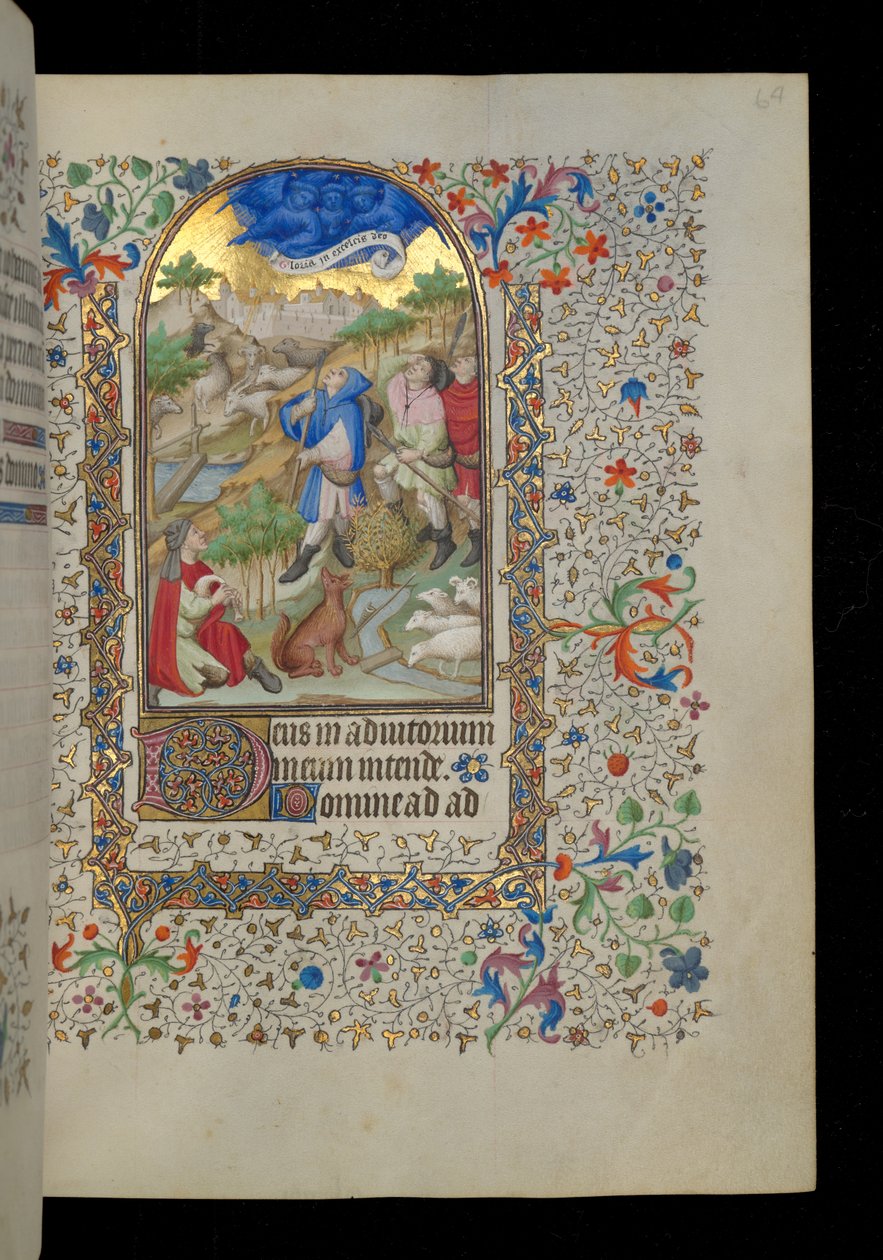 64
Gloria in excelcis deo
Deus in adiutorium
meum intende.
Domine ad ad